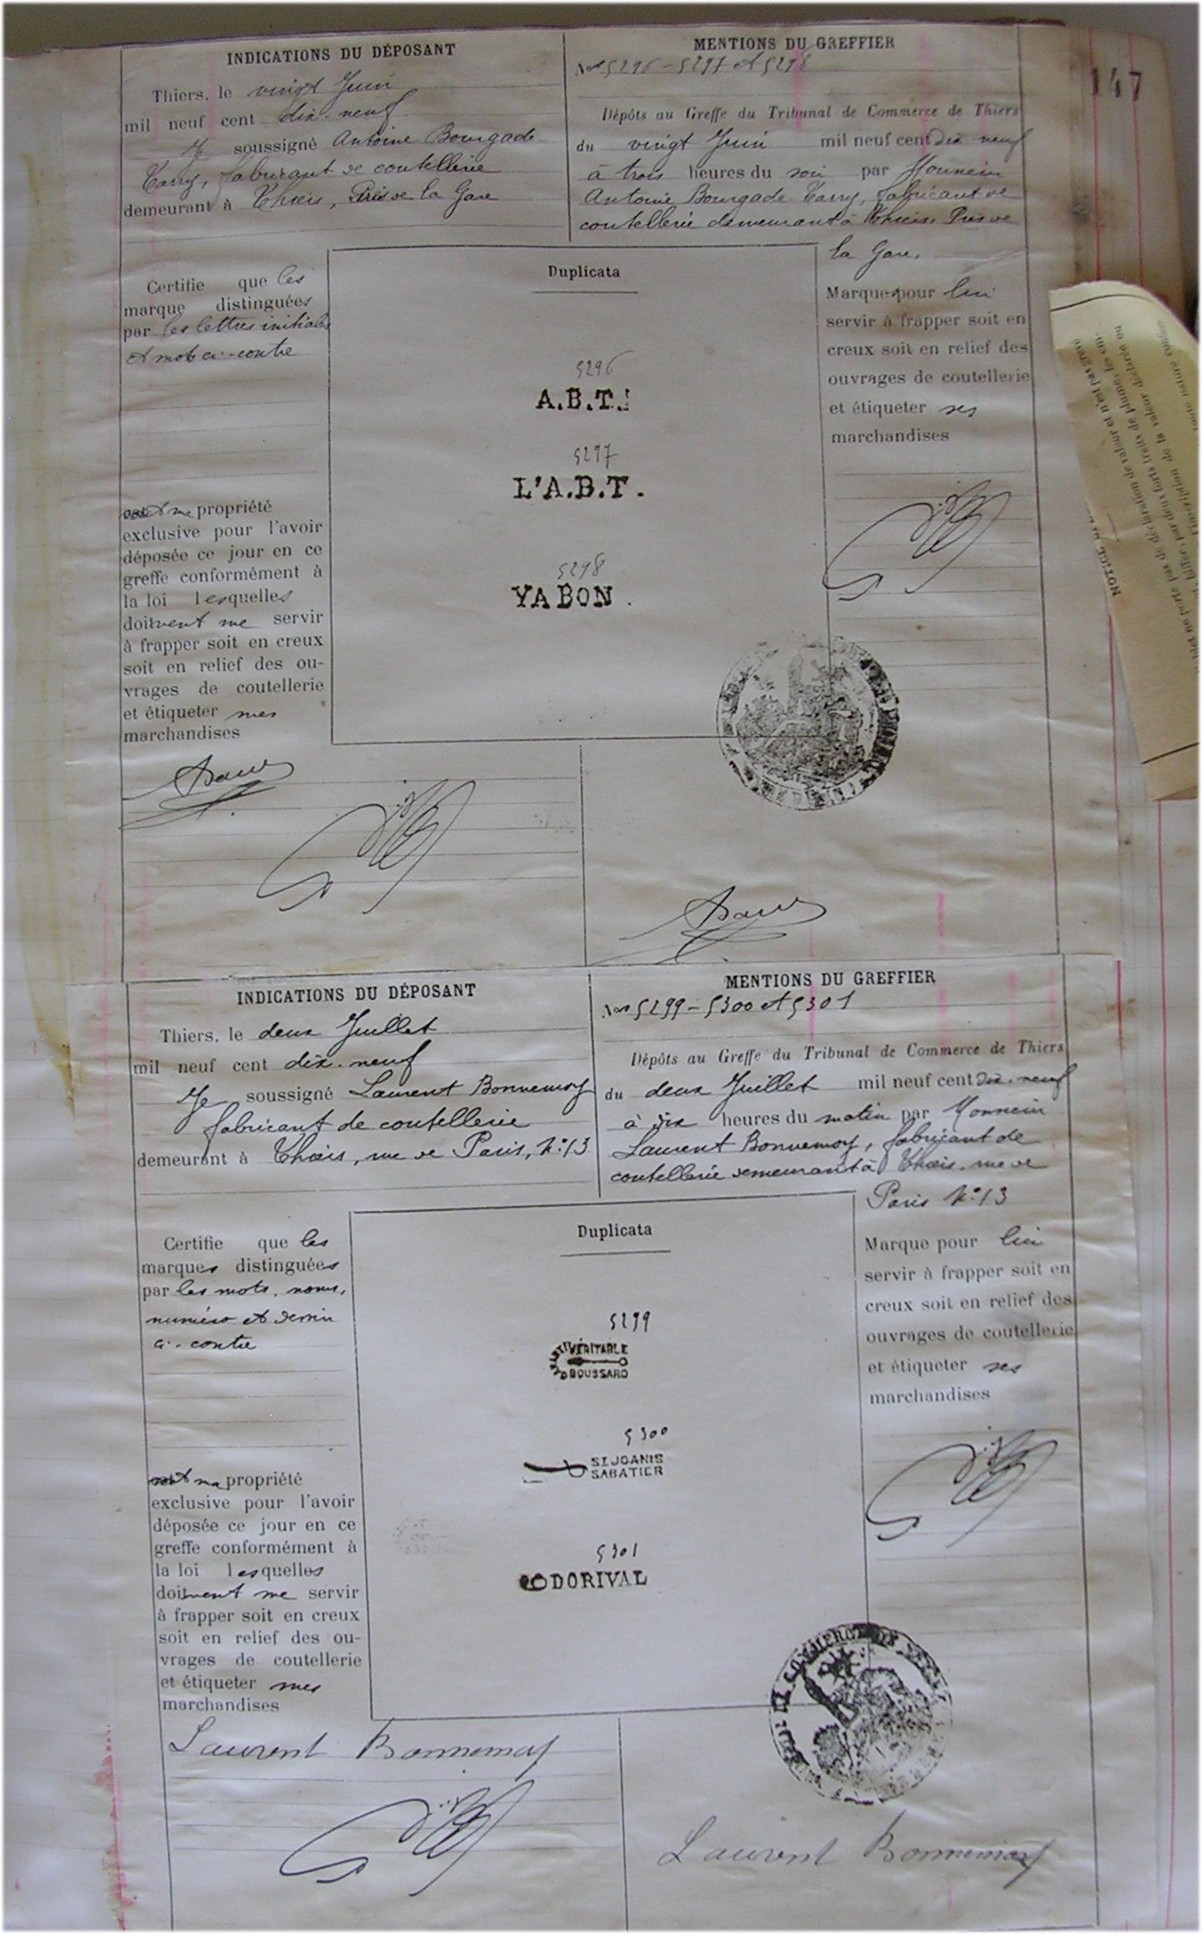 147
INDICATIONS DU DÉPOSANT
Thiers, le vingt Juin
mil neuf cent dix-neuf
Je soussigné Antoine Bourgade
Tarry, fabricant de coutellerie
demeurant à Thiers, Près de la Gare
MENTIONS DU GREFFIER
Nos 5296-5297 et 5298
Dépôts au Greffe du Tribunal de Commerce de Thiers
du vingt Juin mil neuf cent dix neuf
à trois heures du soir par Monsieur
Antoine Bourgade Tarry, fabricant de
coutellerie demeurant à Thiers Près de
la Gare.
Certifie que les
marque distinguées
par les lettres initiales
et mot ci-contre
sont ma propriété
exclusive pour l'avoir
déposée ce jour en ce
greffe conformément à
la loi lesquelles
doivent me servir
à frapper soit en creux
soit en relief des ou-
vrages de coutellerie
et étiqueter mes
marchandises
Duplicata
5296
A.B.T.
5297
L'A.B.T.
5298
YA BON
Marques pour lui
servir à frapper soit en
creux soit en relief des
ouvrages de coutellerie
et étiqueter ses
marchandises
INDICATIONS DU DÉPOSANT
Thiers, le deux Juillet
mil neuf cent dix-neuf
Je soussigné Laurent Bonnemoy
fabricant de coutellerie
demeurant à Thiers, rue de Paris, No 13
MENTIONS DU GREFFIER
Nos 5299-5300 et 5301
Dépôts au Greffe du Tribunal de Commerce de Thiers
du deux Juillet mil neuf cent dix-neuf
à dix heures du matin par Monsieur
Laurent Bonnemoy, fabricant de
coutellerie demeurant à Thiers, rue de
Paris No 13
Certifie que les
marques distinguées
par les mots, noms,
numéro et dessin
ci-contre
sont ma propriété
exclusive pour l'avoir
déposée ce jour en ce
greffe conformément à
la loi lesquelles
doivent me servir
à frapper soit en creux
soit en relief des ou-
vrages de coutellerie
et étiqueter mes
marchandises
Duplicata
5299
VÉRITABLE
BOUSSARD
5300
ST JOANIS
SABATIER
5301
DORIVAL
Marque pour lui
servir à frapper soit en
creux soit en relief des
ouvrages de coutellerie
et étiqueter ses
marchandises
Laurent Bonnemoy
Laurent Bonnemoy